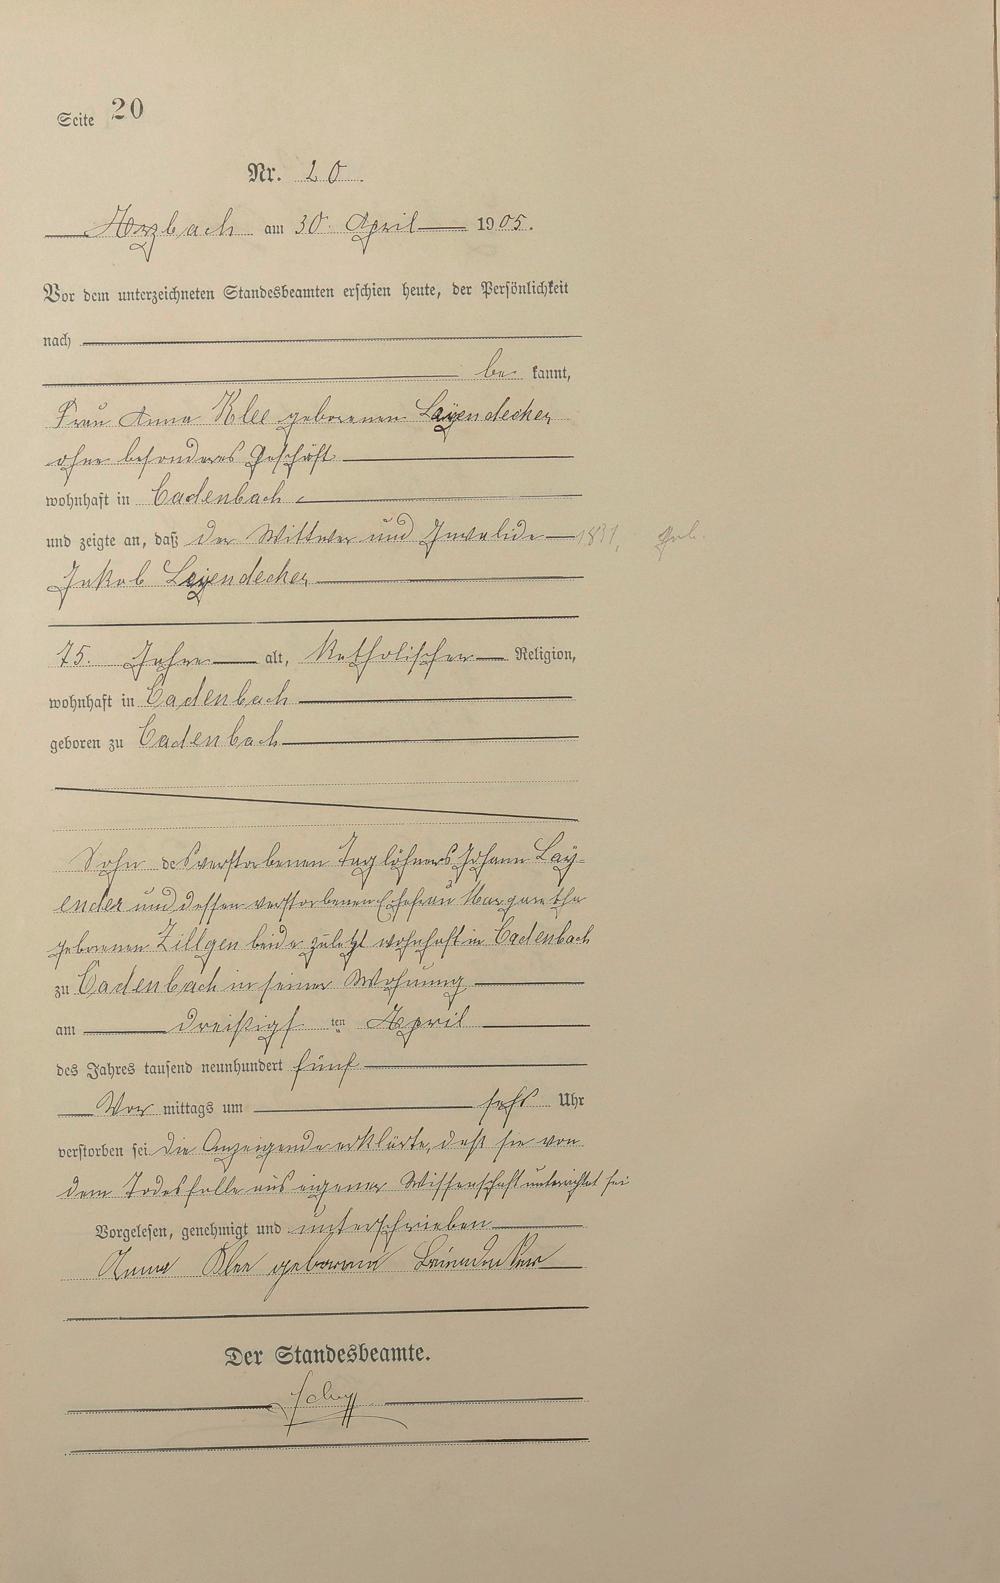 Seite 20
Nr. 20
Arzbach am 30. April 1905.
Vor dem unterzeichneten Standesbeamten erschien heute, der Persönlichkeit
nach
be kannt,
Frau Anna Klee geborenen Layendecker
ohne besonderes Geschäft
wohnhaft in Cadenbach
und zeigte an, daß der Wittwer und Invalide 1831, geb.
Jakob Leyendecker
75. Jahre alt, katholischer Religion,
wohnhaft in Cadenbach
geboren zu Cadenbach
Sohn des verstorbenen Taglöhners Johann Lay-
ender und dessen verstorbenen Ehefrau Margaretha
geborenen Zillgen beide zuletzt wohnhaft in Cadenbach
zu Cadenbach in seiner Wohnung
am dreißigs ten April
des Jahres tausend neunhundert fünf
Vor mittags um sechs Uhr
verstorben sei. Die Anzeigende erklärte, daß sie von
dem Todesfalle aus eigener Wissenschaft unterrichtet sei
Vorgelesen, genehmigt und unterschrieben
Anna Klee geborene
Der Standesbeamte.